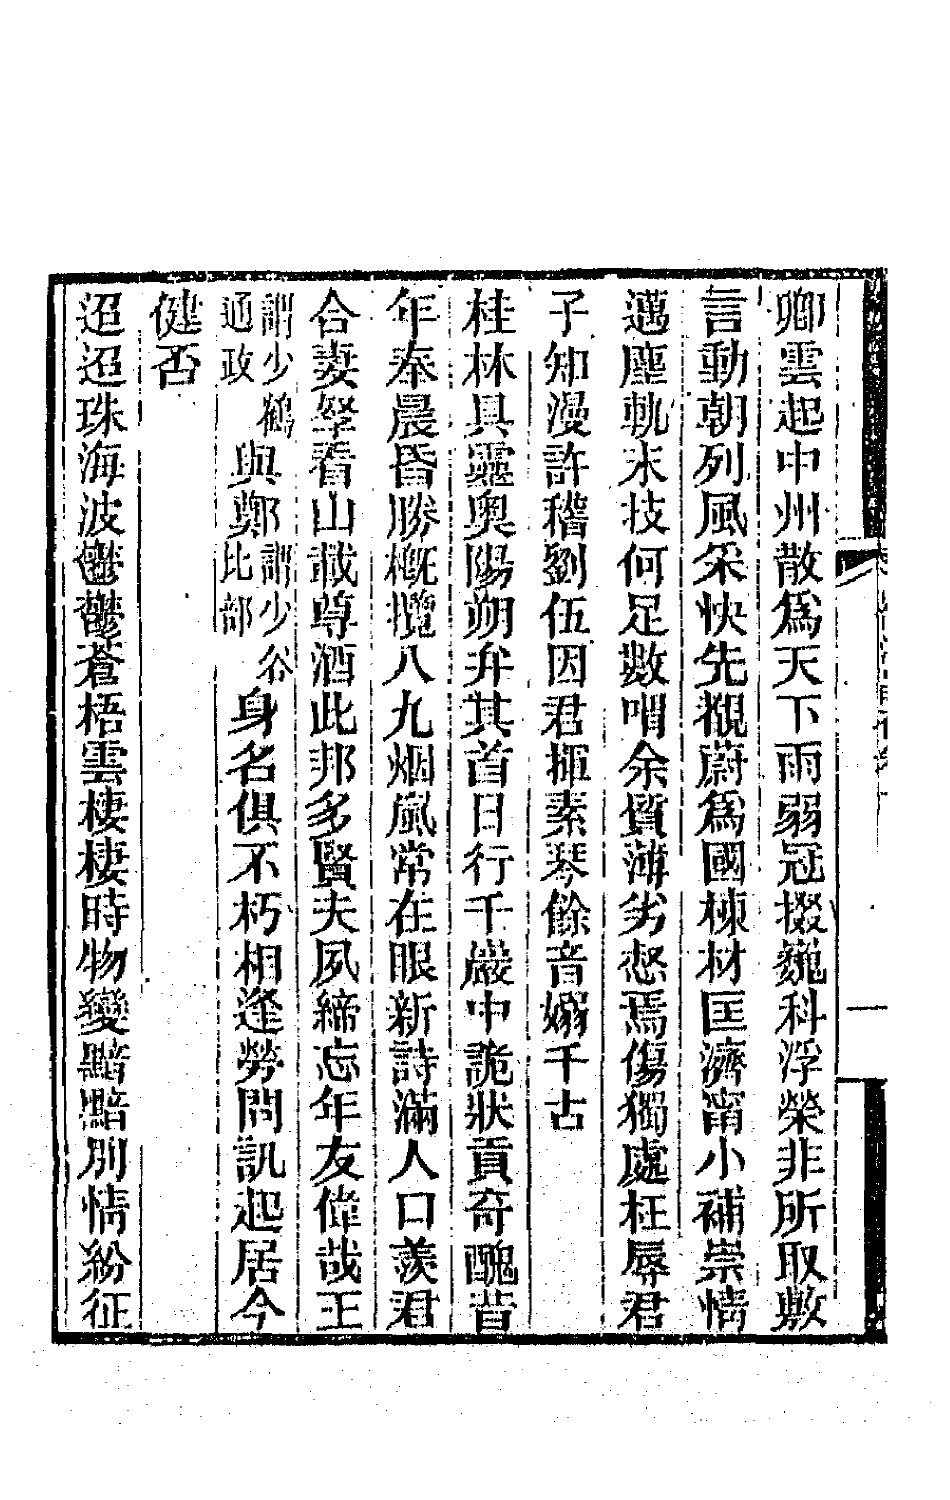 卿雲起中州散爲天下雨弱冠掇巍科浮榮非所取敷
言動朝列風采快先覩蔚爲國棟材匡濟甯小補崇情
邁塵軌末技何足數喟余質薄劣惄焉傷獨處枉辱君
子知漫許稽劉伍因君揮素琴餘音嫋千古
桂林具靈奧陽朔弁其首日行千巖中詭狀貢奇醜昔
年奉晨昏勝槪攬八九烟嵐常在眼新詩滿人口羨君
合妻孥看山載尊酒此邦多賢夫夙締忘年友偉哉王
謂少鶴通政與鄭謂少谷比部身名俱不朽相逢勞問訊起居今
健否
迢迢珠海波鬱鬱蒼梧雲棲棲時物變黯黯別情紛征